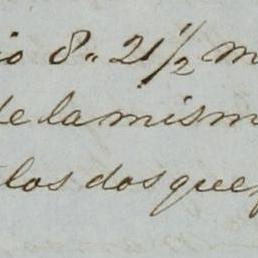 io 8" 21 1/2 m
de la mism
los dos que